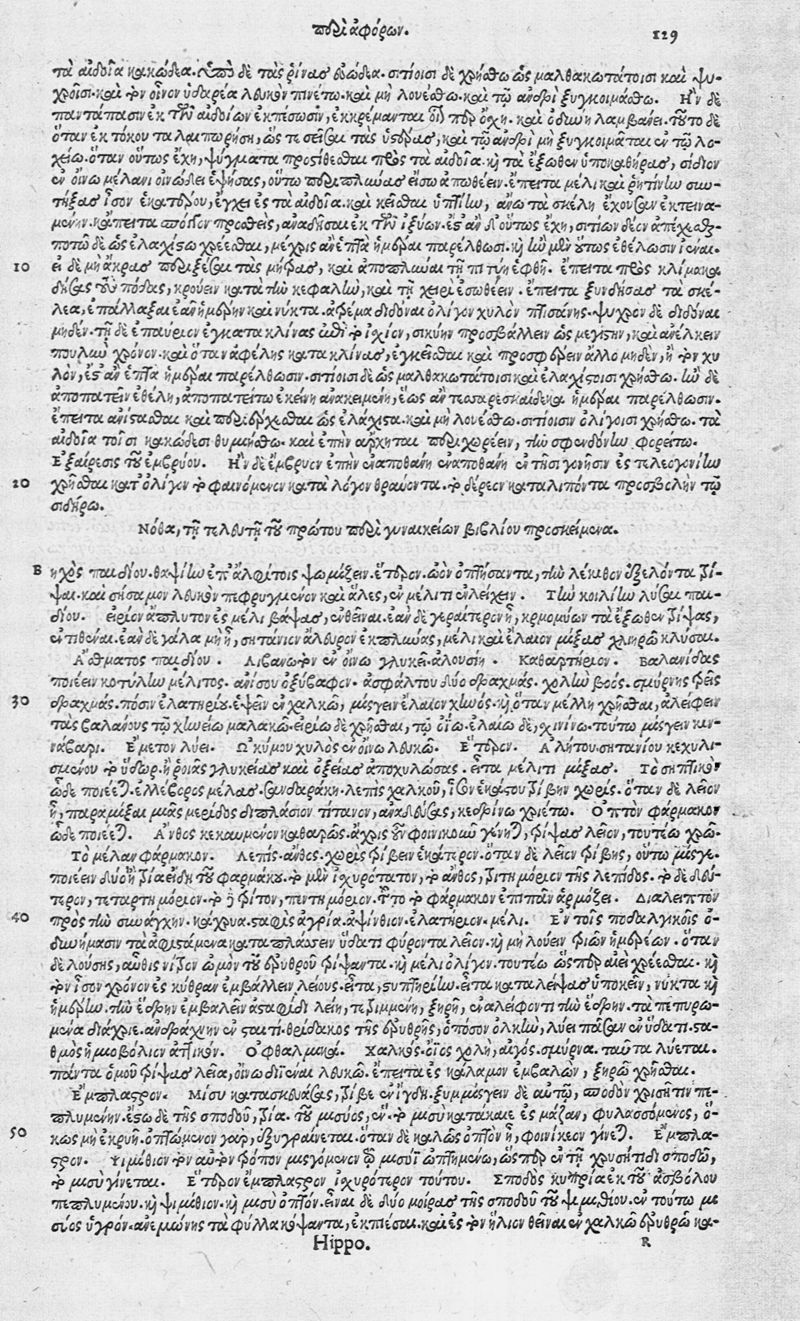 περὶ ἀφόρων. 129
τὰ αἰδοῖα κακώδεα. ὑπὸ δὲ τὰς ῥῖνας εὐώδεα. σιτίοισι δὲ χρήσθω ὡς μαλθακωτάτοισι καὶ ψυ-
χροῖσι. καὶ τὸν οἶνον ὑδαρέα λευκὸν πινέτω. καὶ μὴ λουέσθω. καὶ τῷ ἀνδρὶ ξυγκοιμάσθω. Ἢν δὲ
παντάπασιν ἐκ τῶν αἰδοίων ἐκπέσωσιν, ἐκκρέμανται ὥσπερ ὄσχη. καὶ ὀδύνη λαμβάνει. τοῦτο δὲ
ὅταν ἐκ τόκου ταλαιπωρήσῃ, ὥστε σεῖσαι τὰς ὑστέρας, καὶ τῷ ἀνδρὶ μὴ ξυγκοιμᾶται ἐν τῷ λο-
χείῳ. ὅταν οὕτως ἔχῃ, ψύγματα προστίθεσθαι πρὸς τὰ αἰδοῖα. καὶ τὰ ἔξωθεν ὑποκαθήρας, σίδιον
ἐν οἴνῳ μέλανι οἰνώδει ἑψήσας, οὕτω περιπλύσας εἴσω ἀπωθέειν. ἔπειτα μέλι καὶ ῥητίνην συν-
τήξας ἴσον ἑκατέρου, ἐγχεῖ ἐς τὰ αἰδοῖα. καὶ κεῖσθαι ὑπτίην, ἄνω τὰ σκέλη ἔχουσαν ἐκτεινα-
μένην. κἄπειτα σπόγγον προσθεὶς, ἀναδῆσαι ἐκ τῶν ἰξύων. ἔστ' ἂν δ' οὕτως ἔχῃ, σιτίων δεῖ ἀπέχεσθαι.
ποτῷ δὲ ὡς ἐλαχίστῳ χρέεσθαι, μέχρις ἂν ἑπτὰ ἡμέραι παρέλθωσι. καὶ ἢν μὲν οὕτως ἐθέλωσιν ἰέναι.
10 εἰ δὲ μὴ ἄκρας περιξέσαι τὰς μήτρας, καὶ ἀποπλῦναι τῇ πίτυϊ ἑφθῇ. ἔπειτα πρὸς κλίμακα
δήσας τοὺς πόδας, κρούειν κατὰ τὴν κεφαλὴν, καὶ τῇ χειρὶ ἐσωθέειν. ἔπειτα ξυνδήσας τὰ σκέ-
λεα, ἐπαλλάξαι ἐᾶν ἡμέρην καὶ νύκτα. ἅμα διδόναι ὀλίγον χυλὸν πτισάνης. ψυχρὸν δὲ διδόναι
μηδέν. τῇ δὲ ἐπαύριον ἐγκατακλίνας ἐπὶ τὸ ἰσχίον, σικύην προσβάλλειν ὡς μεγίστην, καὶ ἀνέλκειν
πουλὺν χρόνον. καὶ ὅταν ἀφέλῃς κατακλίνας, ἐγκεῖσθαι καὶ προσφέρειν ἄλλο μηδὲν, ἢ τὸν χυ-
λὸν, ἔστ' ἂν ἑπτὰ ἡμέραι παρέλθωσιν. σιτίοισι δὲ ὡς μαλθακωτάτοισι καὶ ἐλαχίστοισι χρήσθω. ἢν δὲ
ἀποπατεῖν ἐθέλῃ, ἀποπατείτω ἐκείνη ἀνακειμένη, ἕως ἂν τεσσαρεσκαίδεκα ἡμέραι παρέλθωσιν.
ἔπειτα ἀνίστασθαι καὶ περιέρχεσθαι ὡς ἐλάχιστα. καὶ μὴ λουέσθω. σιτίοισιν ὀλίγοισι χρήσθω. τὰ
αἰδοῖα τοῖσι κακώδεσι θυμιήσθω. καὶ ἐπὴν ἄρχηται περιχωρέειν, τὴν σφενδόνην φορείτω.
Ἐξαίρεσις τοῦ ἐμβρύου. Ἢν δὲ ἔμβρυον ἐπὴν ἐναποθανῇ ἐναποθανῇ ἐν τῇσι γονῇσιν ἐς τελεογονίην
20 χρῆσθαι κατ' ὀλίγον τὸ φαινόμενον κατὰ λόγον θραύοντα. τὸ δέρεον καταλιπόντα προσβολὴν τῷ
σιδήρῳ.
Νόθα, τῇ τελευτῇ τοῦ πρώτου περὶ γυναικείων βιβλίου προσκείμενα.
Βηχὸς παιδίου. θαψίην ἐπ' ἀλφίτοις ψωμίζειν. ἕτερον. ὠὸν ὀπτήσαντα, τὴν λέκιθον ἐξελόντα τρί-
ψαι. καὶ σήσαμον λευκὸν πεφρυγμένον καὶ ἅλες, ἐν μέλιτι ἐκλείχειν. Τὴν κοιλίην λῦσαι παι-
δίου. εἰρίον ἄπλυτον ἐς μέλι βάψας, ἐνθεῖναι. ἐὰν δὲ γεραίτερον ᾖ, κρομμύων τὰ ἔξωθεν τρίψας,
ἐντιθέναι. ἐὰν δὲ γάλα μὴ ᾖ, σητάνιον ἄλευρον ἐκπλύνας, μέλι καὶ ἔλαιον μίξας χλιηρῷ κλύσαι.
Ἄσθματος παιδίου. Λιβανωτὸν ἐν οἴνῳ γλυκεῖ. Καθαρτήριον. Βαλανίδας
ποιέειν κοτύλην μέλιτος. ἀνίσου ὀξύβαφον. ἀσφάλτου δύο δραχμάς. χολὴν βοός. σμύρνης τρεῖς
30 δραχμάς. πόσιν ἐλατηρίου. ἕψειν ἐν χαλκῷ, μίσγειν ἔλαιον χηνός. καὶ ὅταν μέλλῃ χρῆσθαι, ἀλείφειν
τὰς βαλάνους τῷ χηνείῳ μαλακῷ. εἰρίῳ δὲ χρῆσθαι, τῷ οἰΐῳ. ἐλαίῳ δὲ, χινίνῳ. τούτῳ μίσγειν κιν-
νάβαρι. Ἔμετον λύει. Ὠκίμου χυλὸς ἐν οἴνῳ λευκῷ. Ἕτερον. Ἀλήτου σητανίου κεχυλι-
σμένου τὸ ὕδωρ. ἢ ῥοιᾶς γλυκείας καὶ ὀξείας ἀποχυλώσας. εἶτα μέλιτι μίξας. Τὸ σηπτικὸν
ὧδε ποιέεται. ἐλλέβορος μέλας. σανδαράκη. λεπὶς χαλκοῦ, ἴσον ἑκάστου τρίβειν χωρίς. ὅταν δὲ λεῖον
ᾖ, παραμίξαι μιᾶς μερίδος διπλάσιον τίτανον, ἀναδεύσας, κεδρίνῳ χριέτω. Ὀπτὸν φάρμακον
ὧδε ποιέεται. Ἄνθος κεκαυμένον καθαρῶς. ἄχρις ἂν φοινικοῦν γένηται, τρίψας λεῖον, τουτέῳ χρῶ.
Τὸ μέλαν φάρμακον. Λεπίς. ἄνθος. χωρὶς τρίβειν ἑκάτερον. ὅταν δὲ λεῖον τρίβῃς, οὕτω μίσγε.
ποιέειν δύο ἢ τρία εἴδη τοῦ φαρμάκου. τὸ μὲν ἰσχυρότατον, τὸ ἄνθος, τρίτη μόριον τῆς λεπίδος. τὸ δὲ δεύ-
τερον, τετάρτη μόριον. τὸ δὲ τρίτον, πέμπτη μόριον. τοῦτο τὸ φάρμακον ἐπιπᾶν ἁρμόζει. Διαλειπτὸν
40 πρὸς τὴν συνάγχην. κάχρυα. σταφὶς ἀγρία. ἀψίνθιον. ἐλατήριον. μέλι. Ἐν τοῖς ποδαλγικοῖς ὀ-
δυνήμασιν τὰ ἀφιστάμενα καταπλάσσειν ὕδατι φύροντα λεῖον. καὶ μὴ λούειν τριῶν ἡμερέων. ὅταν
δὲ λούσῃς, αὖθις νίτρον ὠμὸν τοῦ ἐρυθροῦ τρίψαντα. καὶ μέλι ὀλίγον. τουτέῳ ὥσπερ αἰεὶ χρέεσθαι. καὶ
τὸν ἴσον χρόνον ἐς κύθραν ἐμβάλλειν λείους. εἶτα, στυπτηρίην. εἶτα καταλείψας ὑποκεῖν, νύκτα καὶ
ἡμέρην. τὴν ἕδρην ἐμβαλεῖν ἀσταφίδι λείῃ, τετριμμένῃ, ξηρῇ, ἐναλείφοντι τὴν ἕδρην. τὰ πεπυρω-
μένα διάχριε. ἀνδράχνην ἐν σταιτὶ. θρίδακος τῆς ἐρυθρῆς, ὁπόσον ὁλκὴν, λύει πᾶσαν ἐν ὕδατι. στα-
θμὸς ἡμιοβόλιον ἀττικόν. Ὀφθαλμικά. Χαλκός. ὄϊος χολὴ, αἰγός. σμύρνα. ταῦτα λύεται.
πάντα ὁμοῦ τρίψας λεῖα, οἴνῳ διεῖναι λευκῷ. ἔπειτα ἐς κάλαμον ἐμβαλὼν, ξηρῷ χρῆσθαι.
Ἔμπλαστρον. Μίσυ κατασκευάσας, τρῖβε ἐν ἴγδῃ. ξυμμίσγειν δὲ αὐτῷ, σποδὸν χρισῆτιν πε-
πλυμένην. ἔστω δὲ τῆς σποδοῦ, τρία. τοῦ μίσυος, ἕν. τὸ μίσυ κατάκαιε ἐς μᾶζαν, φυλασσόμενος, ὅ-
50 κως μὴ ἐκρυῇ. ὀπτώμενον γὰρ, ἐξυγραίνεται. ὅταν δὲ καλῶς ὀπτὸν ᾖ, φοινίκεον γίνεται. Ἔμπλα-
στρον. Ψιμίθιον τὸν αὐτὸν τρόπον μισγόμενον τῷ μίσυϊ ὠπτημένῳ, ὥσπερ ἐν τῇ χρυσήτιδι σποδῷ,
τὸ μίσυ γίνεται. Ἕτερον ἔμπλαστρον ἰσχυρότερον τούτου. Σποδὸς κυπρία ἐκ τοῦ ἀσβόλου
πεπλυμένου. καὶ ψιμίθιον. καὶ μίσυ ὀπτόν. εἶναι δὲ δύο μοίρας τῆς σποδοῦ τοῦ ψιμιθίου. ἐν τούτῳ μι
σύος ὑγρόν. ἀνεμώνης τὰ φύλλα κόψαντα, ἐκπιέσαι. καὶ ἐς τὸν ἥλιον θεῖναι ἐν χαλκῷ ἐρυθρῷ κα-
Hippo. R